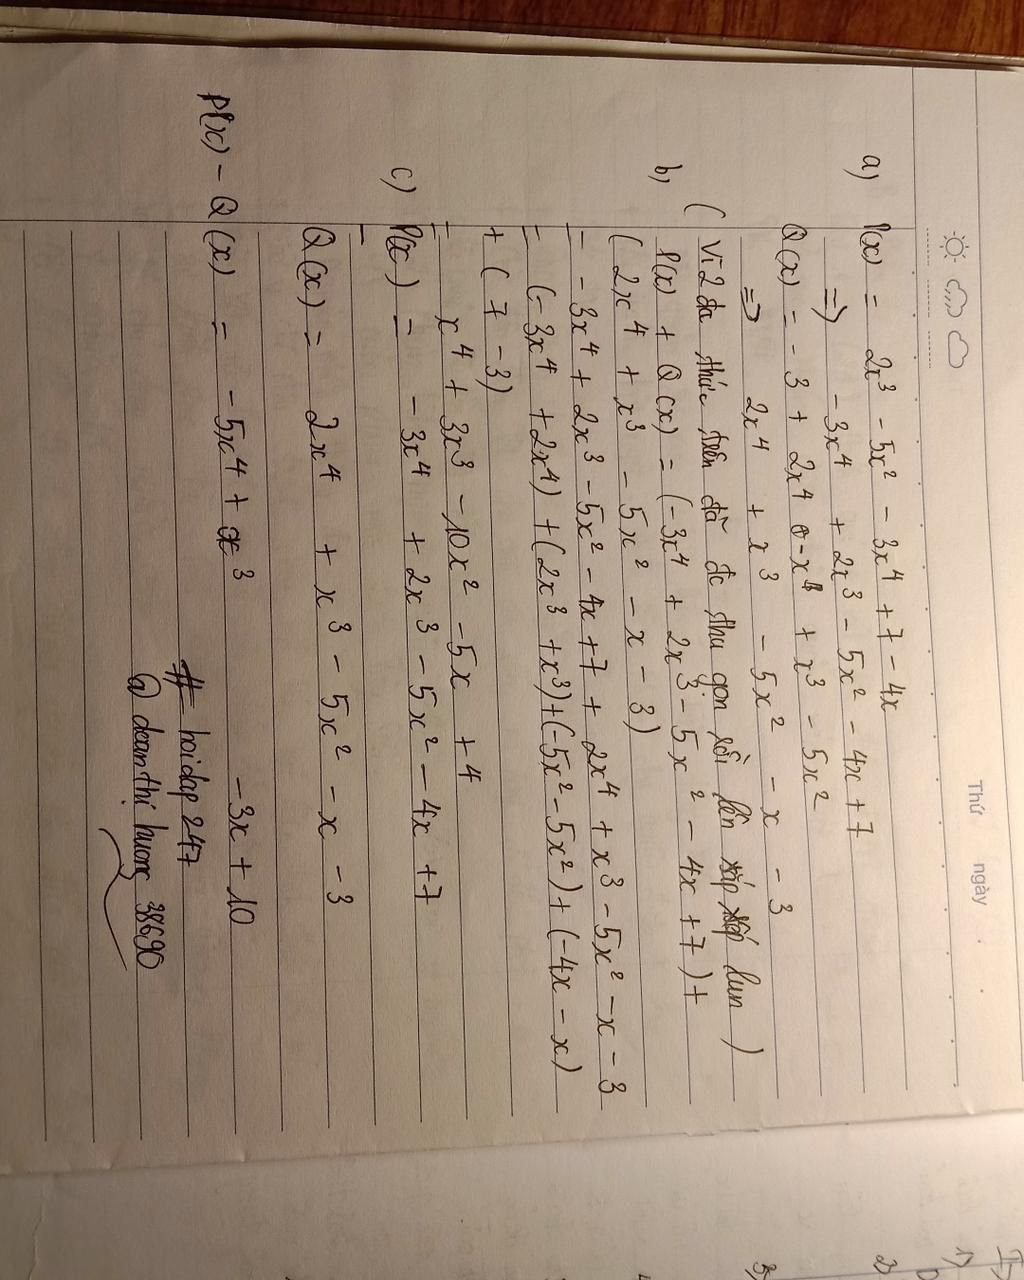 Thứ ngày
a) P(x) = 2x³ - 5x² - 3x⁴ + 7 - 4x
=> - 3x⁴ + 2x³ - 5x² - 4x + 7
Q(x) = - 3 + 2x⁴ - x + x³ - 5x²
=> 2x⁴ + x³ - 5x² - x - 3
( Vì 2 đa thức trên đã đc thu gọn rồi lên sắp xếp lun )
b, P(x) + Q(x) = (-3x⁴ + 2x³ - 5x² - 4x + 7) +
(2x⁴ + x³ - 5x² - x - 3)
= - 3x⁴ + 2x³ - 5x² - 4x + 7 + 2x⁴ + x³ - 5x² - x - 3
= (-3x⁴ + 2x⁴) + (2x³ + x³) + (-5x² - 5x²) + (-4x - x)
+ (7 - 3)
= x⁴ + 3x³ - 10x² - 5x + 4
c) P(x) = - 3x⁴ + 2x³ - 5x² - 4x + 7
-
Q(x) = 2x⁴ + x³ - 5x² - x - 3
P(x) - Q(x) = - 5x⁴ + x³ - 3x + 10
# hoidap 247
@ doanthi huong 38690
1)
2)
3)